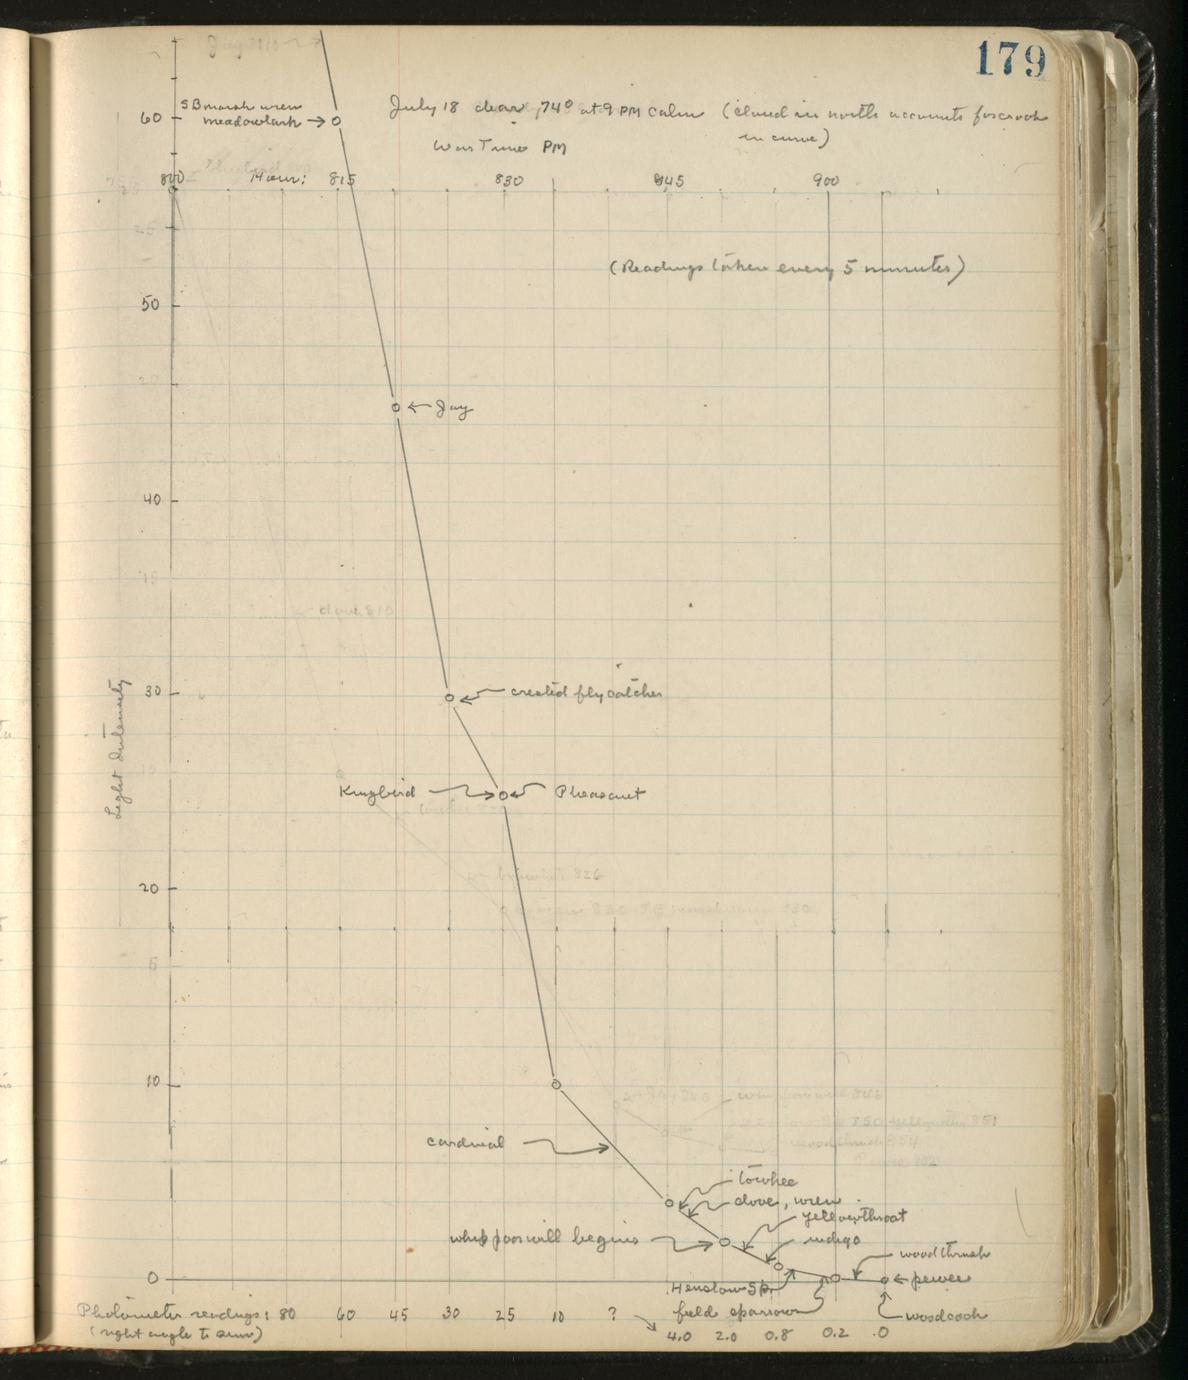 179
July 18 clear, 74° at 9 PM calm (cloud in north accounts for crook
in curve)
War Time PM
S B marsh wren
meadowlark →
60
800 Hour: 815 830 845 900
(Readings taken every 5 minutes)
50
← Jay
40
30
crested flycatcher
Light Intensity
Kingbird
Pheasant
20
10
cardinal
towhee
dove, wren
yellowthroat
whippoorwill begins
indigo
woodthrush
0
← pewee
Henslow Sp.
field sparrow
woodcock
Photometer readings: 80 60 45 30 25 10 ?
4.0 2.0 0.8 0.2 .0
(right angle to sun)